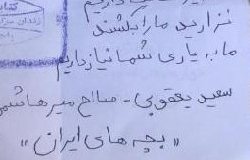 کتاب
زندان
نزارید ما را بکشند
ما به یاری شما نیاز داریم
سعید یعقوبی - صالح میرهاشمی
"بچه های ایران"